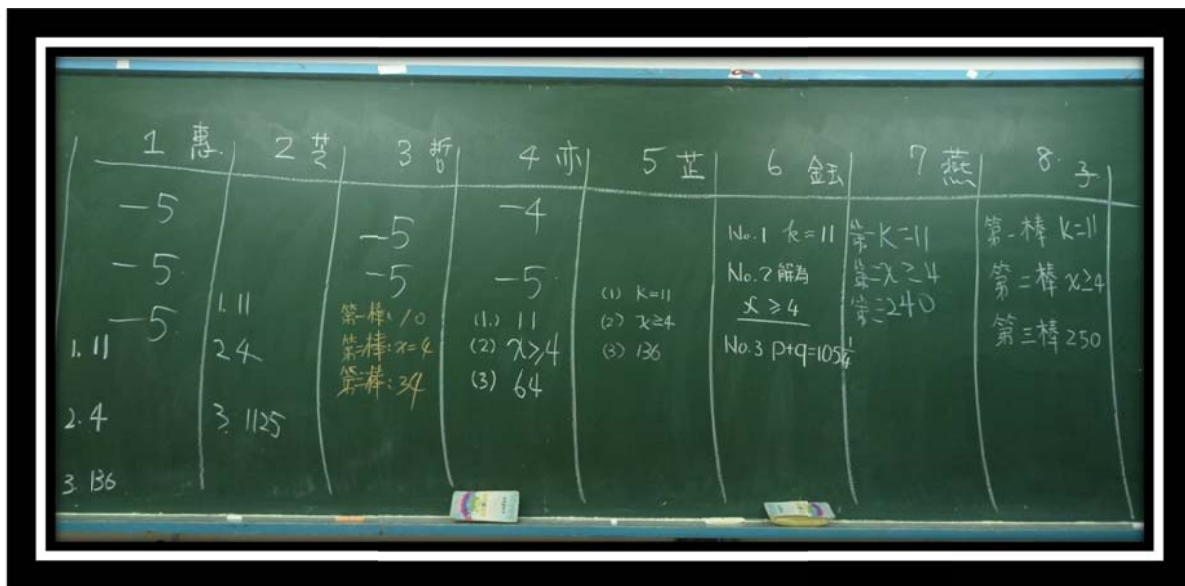 1 惠
-5
-5
-5
1. 11
2. 4
3. 136
2 芝
1. 11
2 4
3. 1125
3 哲
-5
-5
第一棒: 10
第二棒: x=4
第三棒: 34
4 亦
-4
-5
(1.) 11
(2) x≥4
(3) 64
5 芷
(1) K=11
(2) x≥4
(3) 136
6 鈺
No.1 k=11
No.2 解為
x≥4
No.3 p+q=105 1/4
7 燕
第一K=11
第二x≥4
第三240
8. 子
第一棒 K=11
第二棒 x≥4
第三棒 250